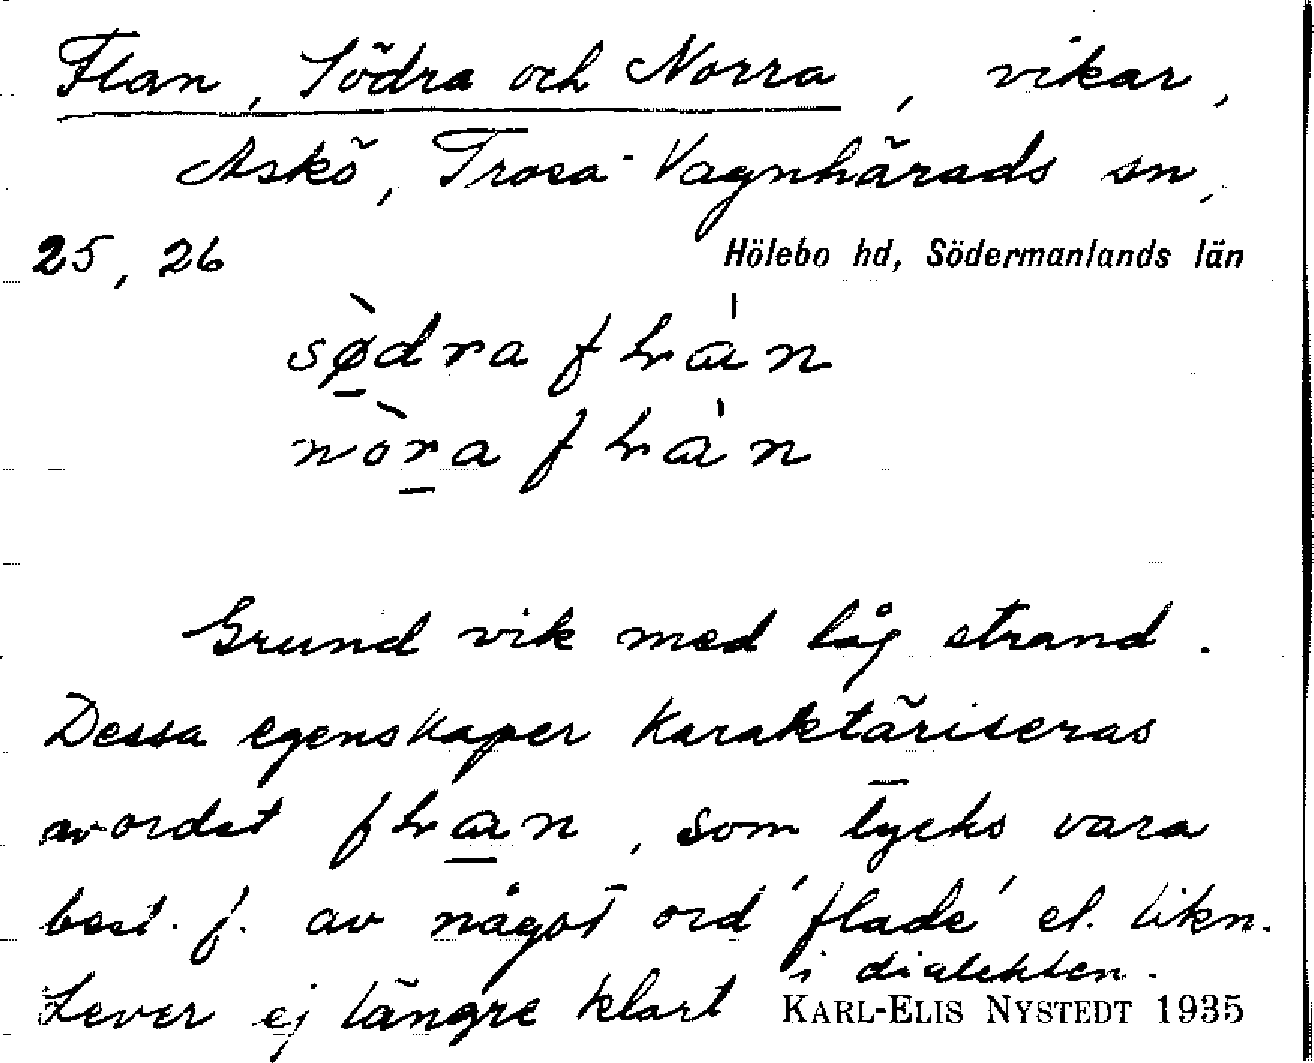 Flan, Södra och Norra, vikar,
Askö, Trosa-Vagnhärads sn,
25, 26 Hölebo hd, Södermanlands län
sø̀dra flan
nòra flan
Grund vik med låg strand.
Dessa egenskaper karaktäriseras
av ordet flan, som tycks vara
best. f. av något ord 'flade' el. likn.
Lever ej längre klart i dialekten.
KARL-ELIS NYSTEDT 1935